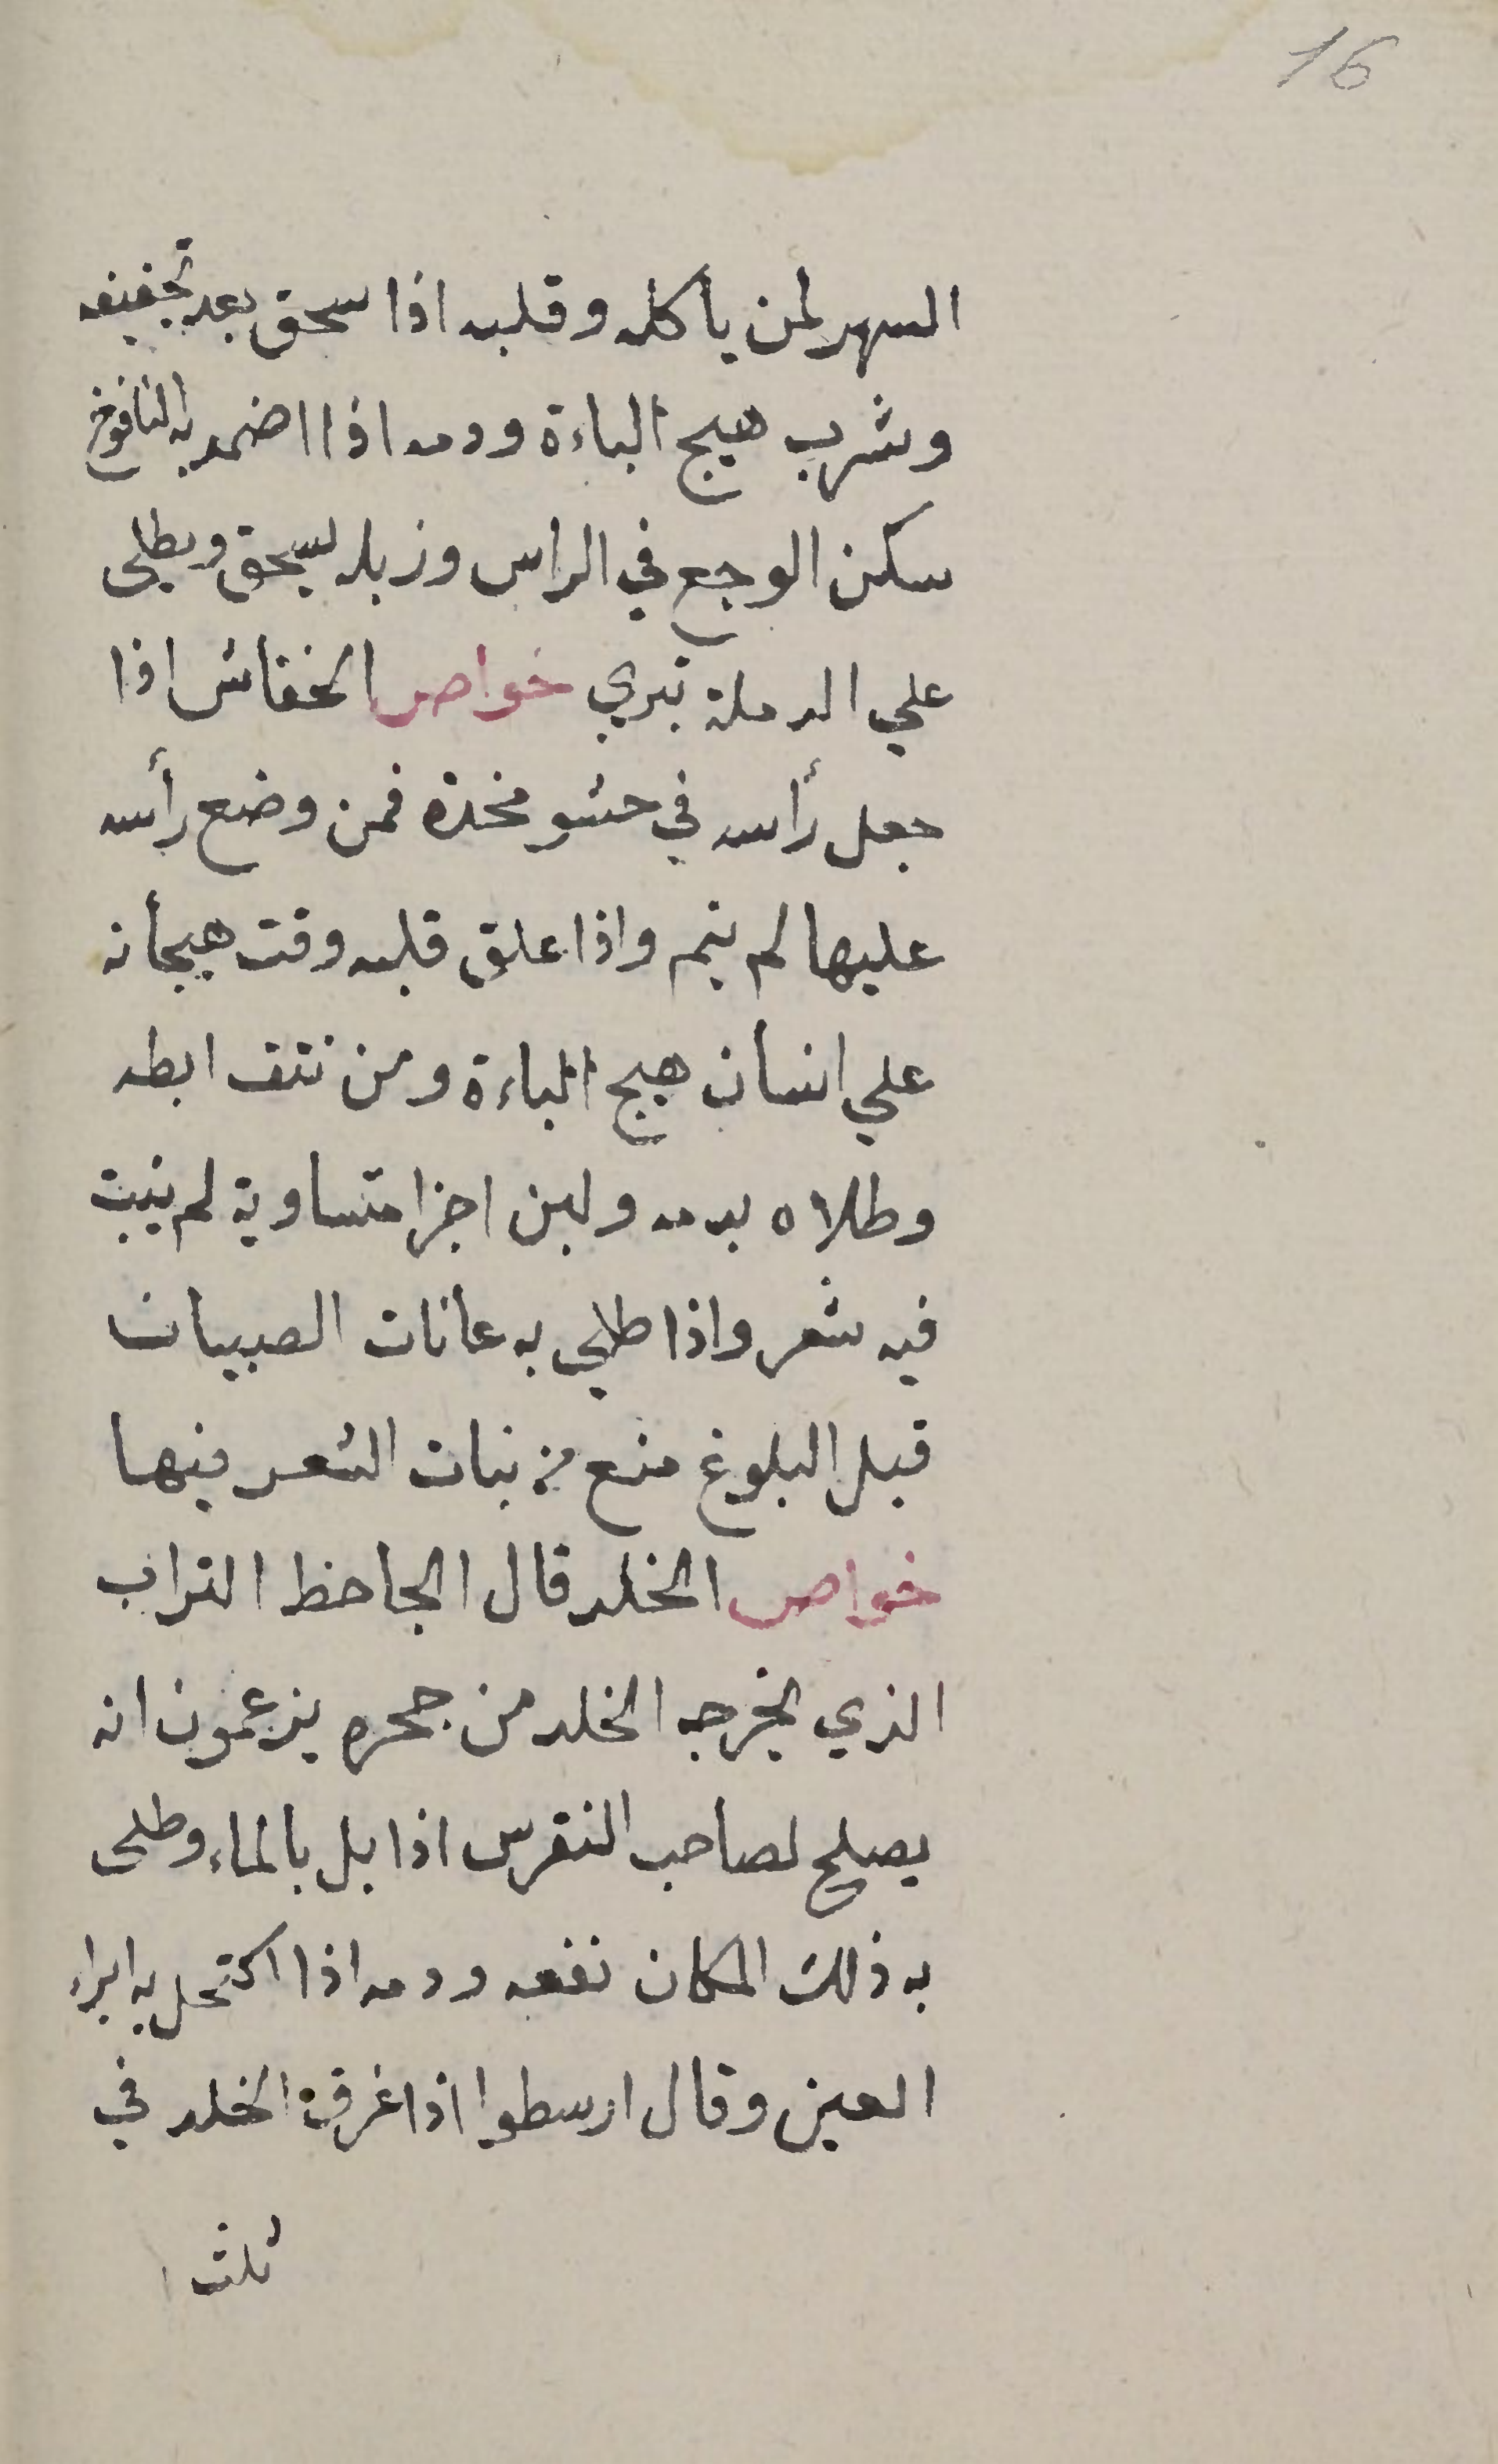 16
السهر لمن ياكله وقلبه اذا سحق بعد تجفيفه
وشرب هيج الباءة ودمه اذا اضمد به النافوخ
سكن الوجع في الراس وزبله يسحق ويطلي
علي الدملة تبري خواص الخفاش اذا
جعل رأسه في حشو مخدة فمن وضع رأسه
عليها لم ينم واذا علق قلبه وقت هيجأنه
علي انسان هيج الباءة ومن نتف ابطه
وطلاه بدمه ولبن اجزا متساوية لم ينبت
فيه شعر واذا طلي به عانات الصبيان
قبل البلوغ منع من نبات الشعر فيها
خواص الخلد قال الجاحظ التراب
الذي يخرجه الخلد من جحره يزعمون انه
يصلح لصاحب النقرس اذا بل بالماء وطلى
به ذلك المكان نفعه ودمه اذا اكتحل به ابراء
العين وقال ارسطوا اذا غرق الخلد في
ثلث